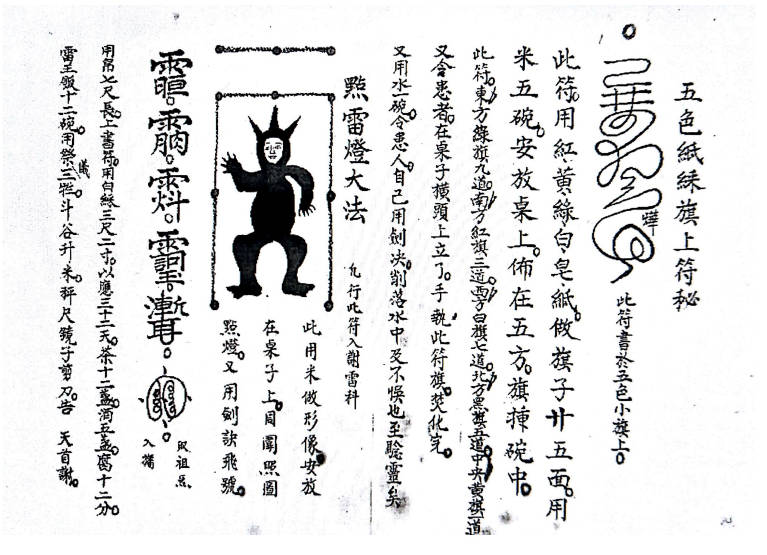 五色紙綵旗上符秘
此符書於五色小旗上
此符用紅黃綠白皂紙做旗子廿五面用
米五碗安放桌上佈在五方旗揀碗中
此符東方綠旗九道南方紅旗三道西方白旗七道北方黑旗五道中央黃旗一道
又令患者在桌子橫頭上立了手執此符旗焚化完
又用水一碗令患人自己用劍決削落水中及不悞也至驗靈矣
點雷燈大法
凢行此符入謝雷科
此用米做形像安放
在桌子上目闈照圖
點燈又用劍訣飛號
用帛七尺長上書符用白綠三尺二寸以應三十二天茶十二盞酒五盞腐十二分
雷王飯十二碗用祭儀三牲斗谷升米秤尺鏡子剪刀告 天首謝